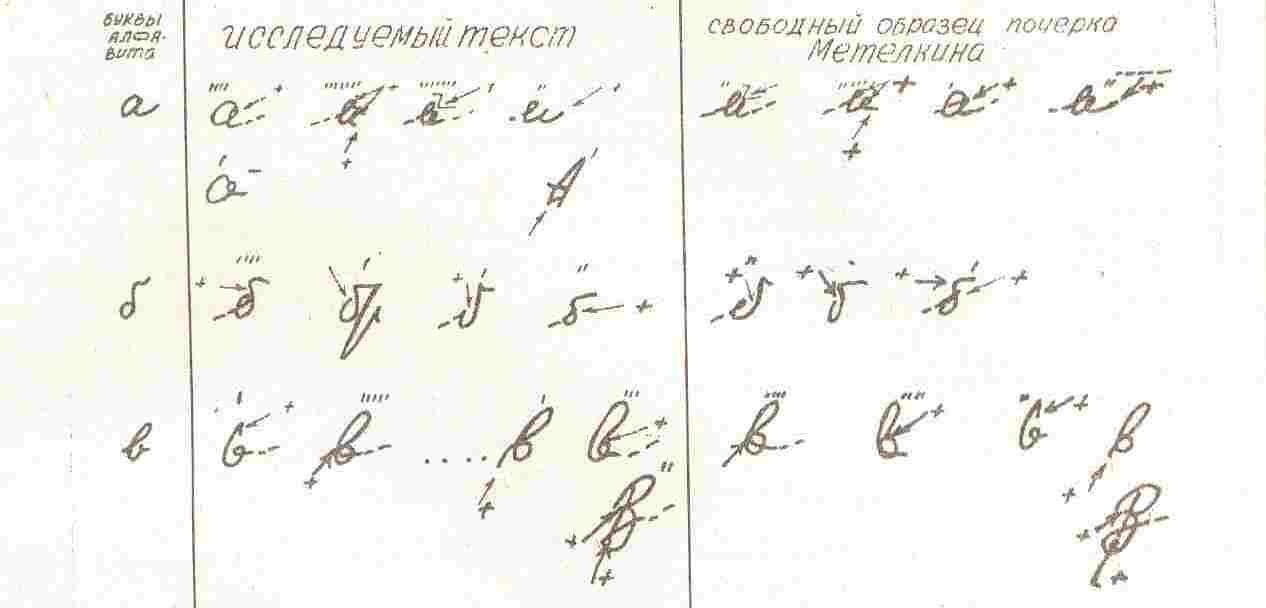 буквы алфа-вита
исследуемый текст
свободный образец почерка
Метелкина
а
а а а а а а а а
а А
б
б б б б б б б
в
в в в в в в в в
в в